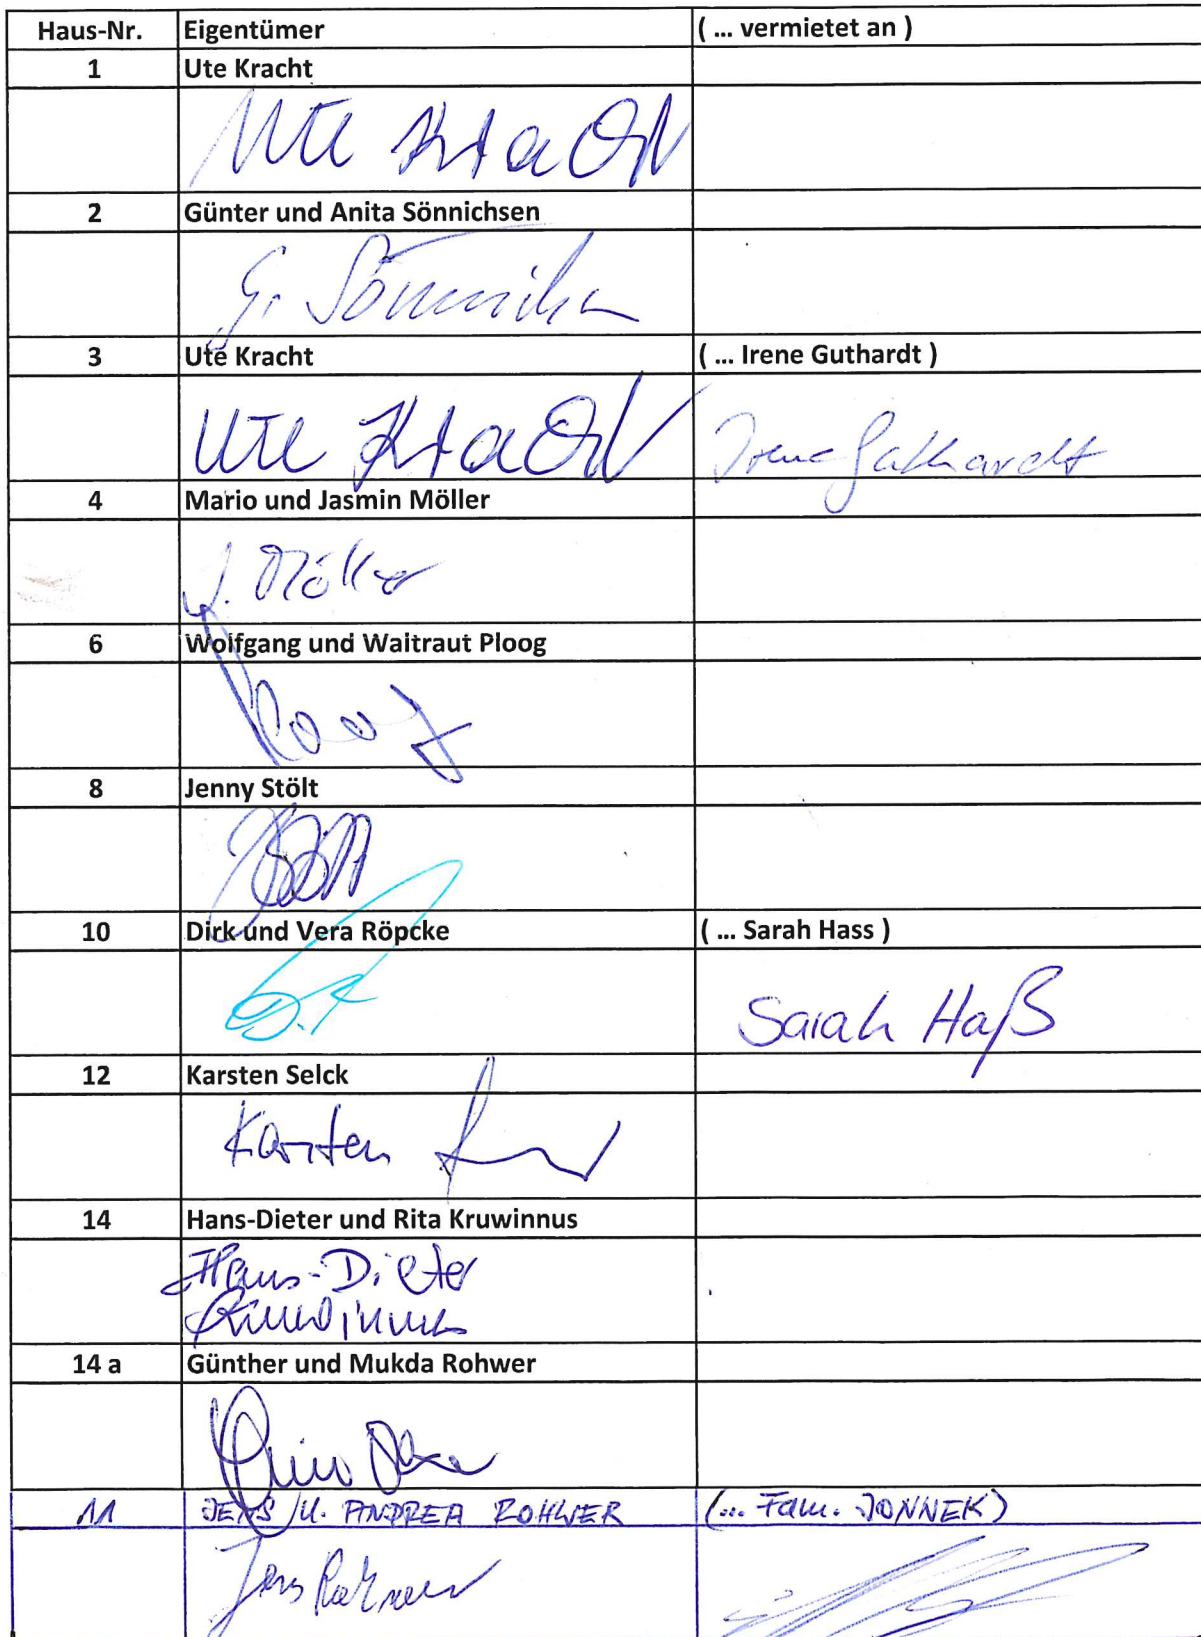 Haus-Nr. Eigentümer ( ... vermietet an )
1 Ute Kracht
Ute Kracht
2 Günter und Anita Sönnichsen
G. Sönnichsen
3 Ute Kracht ( ... Irene Guthardt )
Ute Kracht Irene Guthardt
4 Mario und Jasmin Möller
J. Möller
6 Wolfgang und Waltraut Ploog
Ploog
8 Jenny Stölt
10 Dirk und Vera Röpcke ( ... Sarah Hass )
Sarah Haß
12 Karsten Selck
Karsten
14 Hans-Dieter und Rita Kruwinnus
Hans-Dieter
Kruwinnus
14 a Günther und Mukda Rohwer
11 JENS U. ANDREA ROHWER (... FAM. JONNEK)
Jens Rohwer